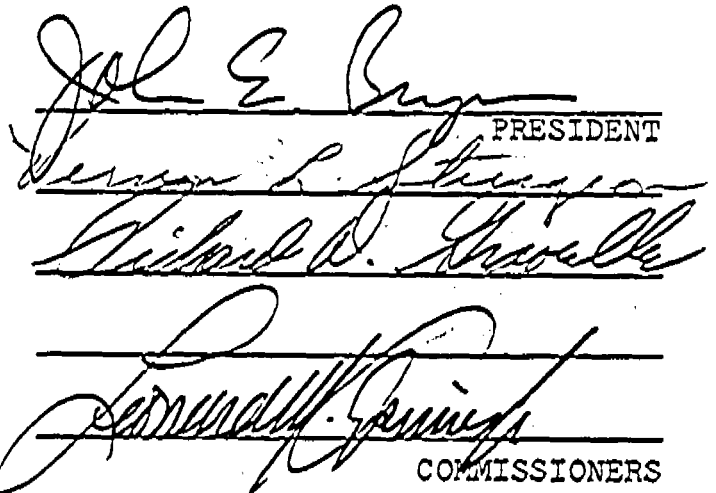 John E. Bryson
PRESIDENT
Vernon L. Sturgeon
Richard D. Gravelle
Leonard M. Grimes Jr
COMMISSIONERS